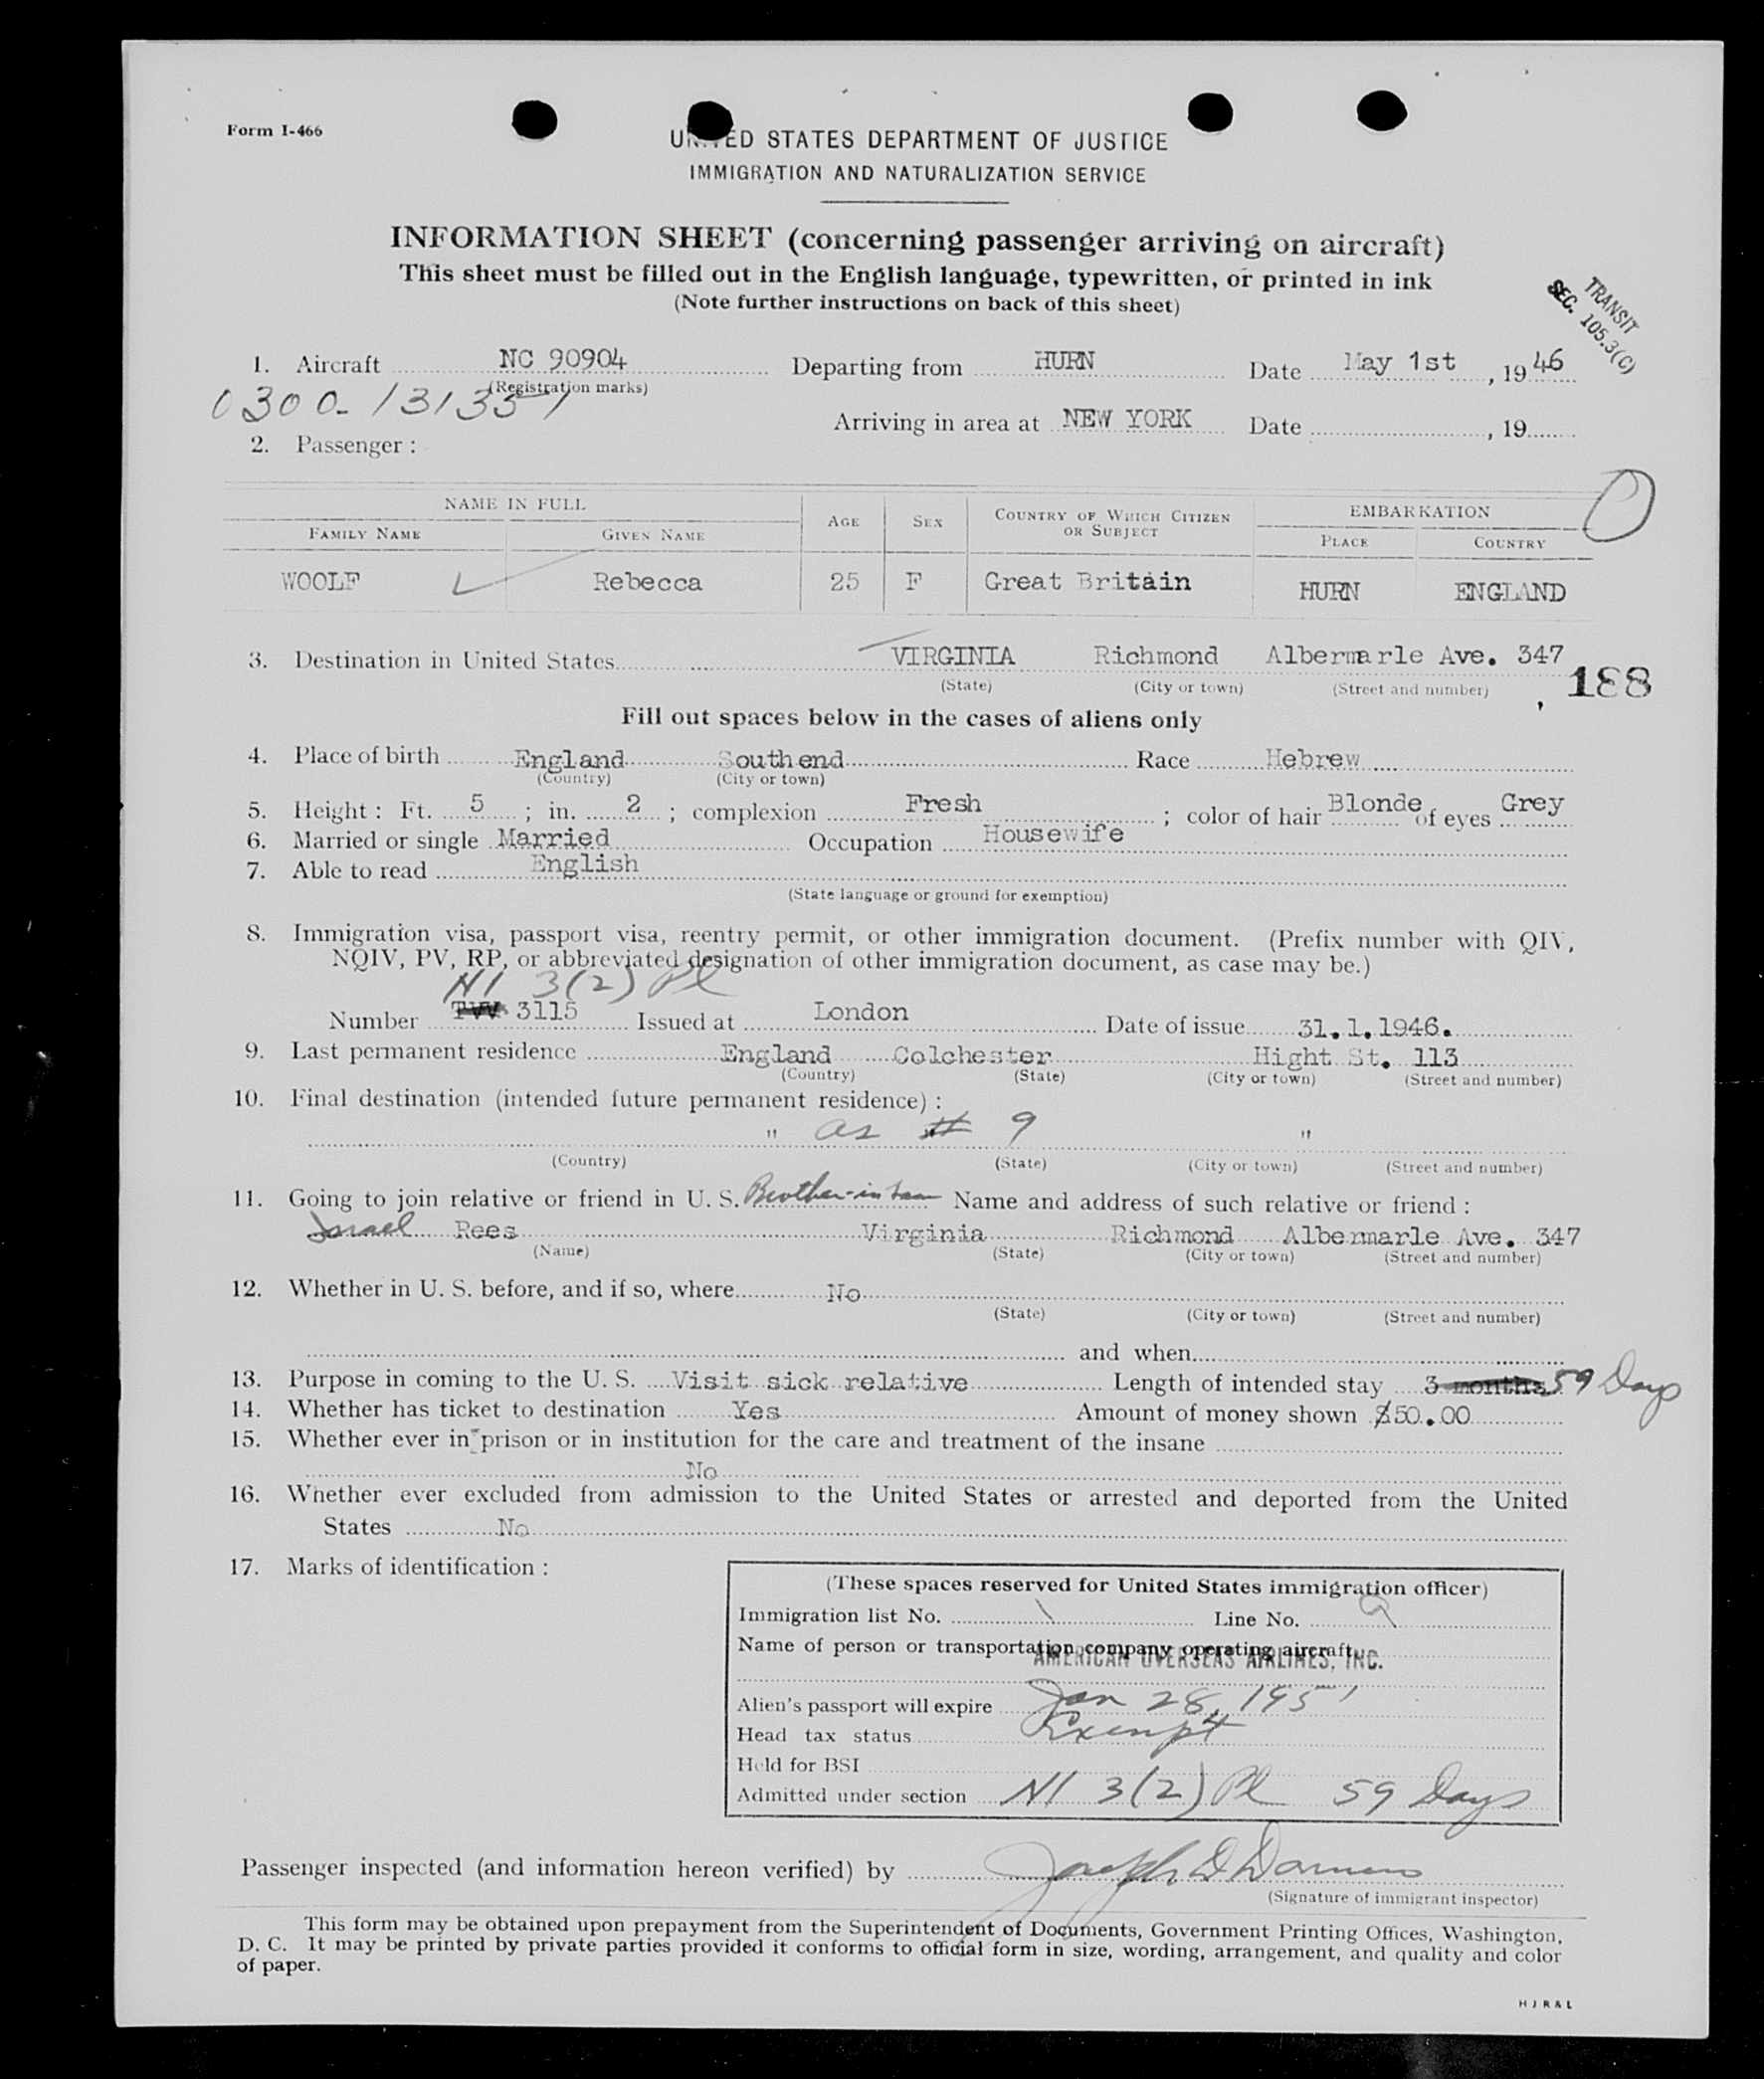 Form I-466
UNITED STATES DEPARTMENT OF JUSTICE
IMMIGRATION AND NATURALIZATION SERVICE
INFORMATION SHEET (concerning passenger arriving on aircraft)
This sheet must be filled out in the English language, typewritten, or printed in ink
(Note further instructions on back of this sheet)
TRANSIT
SEC. 105.3(C)
1. Aircraft NC 90904 Departing from HURN Date May 1st, 1946
(Registration marks)
0300-131351
Arriving in area at NEW YORK Date , 19
2. Passenger:
NAME IN FULL AGE SEX COUNTRY OF WHICH CITIZEN OR SUBJECT EMBARKATION
FAMILY NAME GIVEN NAME PLACE COUNTRY
WOOLF Rebecca 25 F Great Britain HURN ENGLAND
3. Destination in United States VIRGINIA Richmond Albermarle Ave. 347
(State) (City or town) (Street and number)
188
Fill out spaces below in the cases of aliens only
4. Place of birth England Southend Race Hebrew
(Country) (City or town)
5. Height: Ft. 5; in. 2; complexion Fresh; color of hair Blonde of eyes Grey
6. Married or single Married Occupation Housewife
7. Able to read English
(State language or ground for exemption)
8. Immigration visa, passport visa, reentry permit, or other immigration document. (Prefix number with QIV,
NQIV, PV, RP, or abbreviated designation of other immigration document, as case may be.)
NI 3(2) Pl
Number 3115 Issued at London Date of issue 31.1.1946.
9. Last permanent residence England Colchester Hight St. 113
(Country) (State) (City or town) (Street and number)
10. Final destination (intended future permanent residence):
" as # 9 "
(Country) (State) (City or town) (Street and number)
11. Going to join relative or friend in U. S. Brother-in law Name and address of such relative or friend:
Israel Rees Virginia Richmond Albermarle Ave. 347
(Name) (State) (City or town) (Street and number)
12. Whether in U. S. before, and if so, where No
(State) (City or town) (Street and number)
and when
13. Purpose in coming to the U. S. Visit sick relative Length of intended stay 3 months 59 Days
14. Whether has ticket to destination Yes Amount of money shown $50.00
15. Whether ever in prison or in institution for the care and treatment of the insane
No
16. Whether ever excluded from admission to the United States or arrested and deported from the United
States No
17. Marks of identification:
(These spaces reserved for United States immigration officer)
Immigration list No. 1 Line No. 9
Name of person or transportation company operating aircraft
AMERICAN OVERSEAS AIRLINES, INC.
Alien's passport will expire Jan 28, 1951
Head tax status Exempt
Held for BSI
Admitted under section NI 3(2) Pl 59 Days
Passenger inspected (and information hereon verified) by Joseph D
(Signature of immigrant inspector)
This form may be obtained upon prepayment from the Superintendent of Documents, Government Printing Offices, Washington,
D. C. It may be printed by private parties provided it conforms to official form in size, wording, arrangement, and quality and color
of paper.
H J R & L